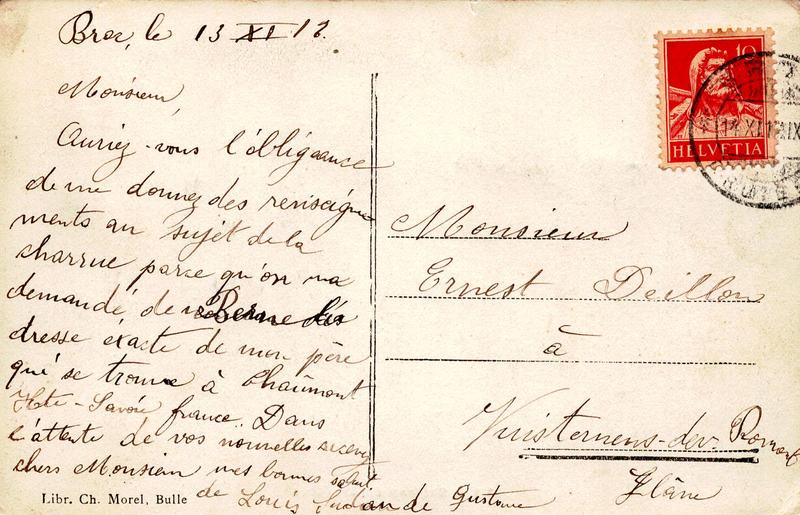 Broc, le 13 XI 18.
Monsieur,
Auriez-vous l'obligeance
de me donnez des renseigne
ments au sujet de la
charrue parce qu'on m'a
demandé de Berne
dresse éxacte de mon père
qué se trouve à Chaumont
Hte-Savoie france. Dans
l'attente de vos nouvelles recevez
chers Monsieur mes bonnes salut
de Louis de Gustave
Libr. Ch. Morel, Bulle
10
HELVETIA
14 XI
Monsieur
Ernest Deillon
à
Vuisternens-dev Romont
Glâne